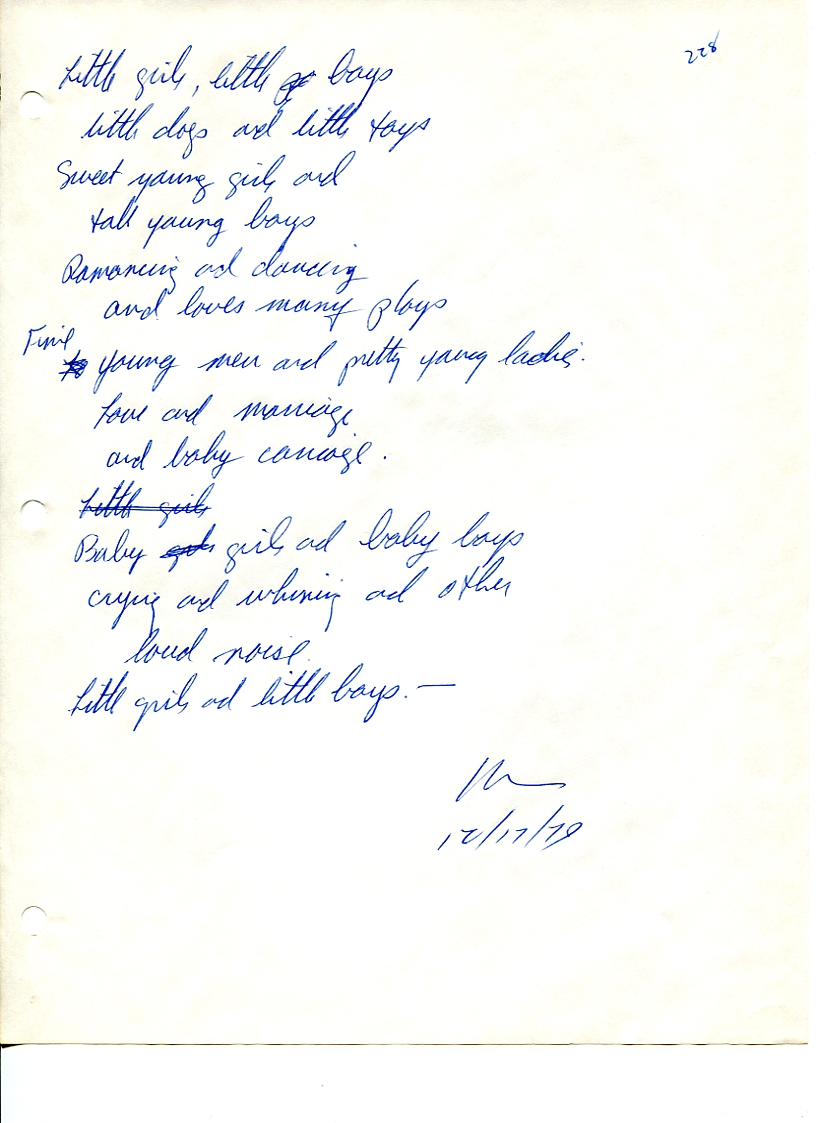 228
Little girls, little boys
little dogs and little toys
Sweet young girls and
tall young boys
Romancing and dancing
and loves many ploys
Fine
young men and pretty young ladies.
Love and marriage
and baby carriage.
Little girls
Baby girls and baby boys
crying and whining and other
loud noise.
Little girls and little boys. —
12/17/79